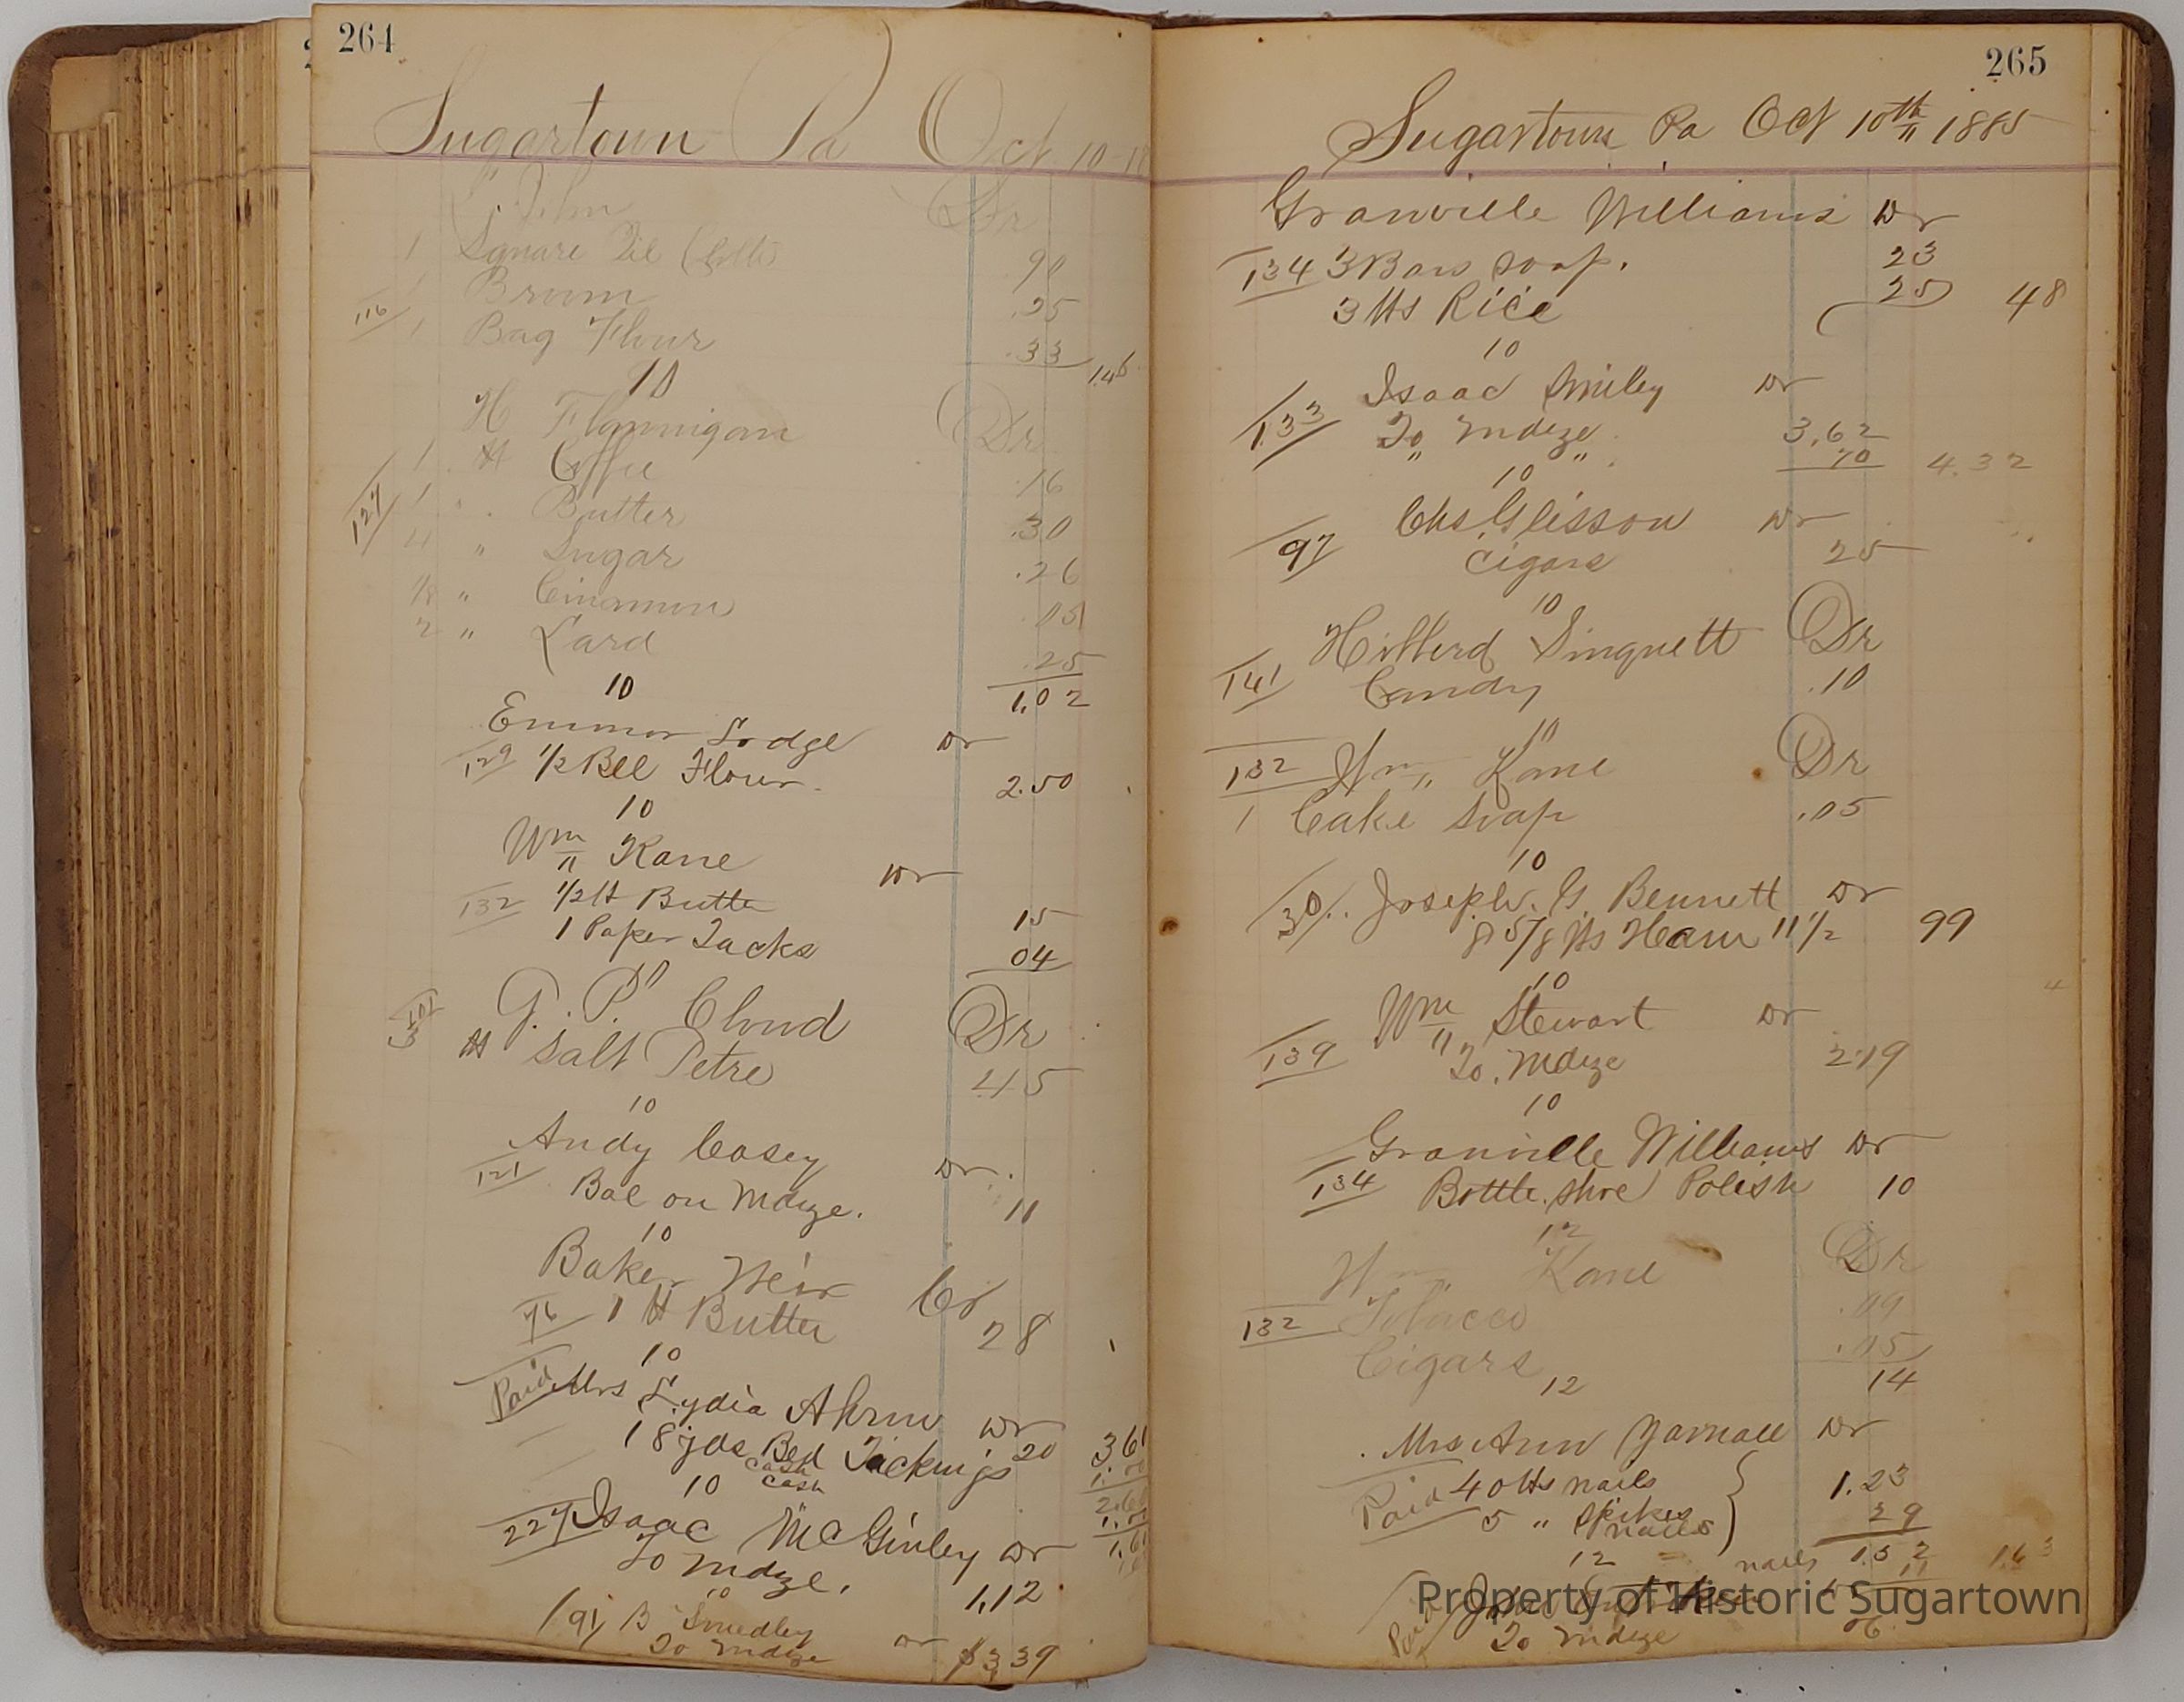 264
Sugartown Pa Oct 10
John Dr
1 Square Oil Cloth 90
1 Broom .25
116 1 Bag Flour .33 1.46
10
H Flannigan Dr
1 lb Coffee .16
127 1 " Butter .30
4 " Sugar .26
1/8 " Cinamon .05
2 " Lard .25
1.02
10
Emmor Lodge Dr
129 1/2 Bbl Flour 2.50
10
Wm Kane Dr
132 1/2 lb Butter 15
1 Paper Tacks 04
10
G. P. Cloud Dr
lb Salt Petre 45
10
Andy Casey Dr
121 Bal on Mdze. 11
10
Baker Weir Cr
76 1 lb Butter 28
10
Paid Mrs Lydia Ahrm Dr
18 yds Bed Tickings 20 3.61
cash
cash
10
227 Isaac McGinley Dr
To Mdze. 1.12
10
91 B Smedley Dr
To Mdze $3.39
265
Sugartown Pa Oct 10th 1885
Granville Williams Dr
134 3 Bars soap. 23
3 lbs Rice 25 48
10
Isaac Smiley Dr
133 To Mdze 3.62
" " 70 4.32
10
Chs Glisson Dr
97 Cigars 25
10
Hillerd Singuett Dr
141 Candy .10
10
132 Wm Kane Dr
1 Cake Soap .05
10
30 Joseph G. Bennett Dr
8 5/8 lbs Ham 11 1/2 99
10
Wm Stewart Dr
139 To Mdze 2.19
10
Granville Williams Dr
134 Bottle Shoe Polish 10
12
Wm Kane Dr
132 Tobacco .09
Cigars .05
14
12
Mrs Ann Yarnall Dr
Paid 40 lbs nails 1.23
5 " Spikes 29
nails
12 nails 1.52 1.63
11
Paid John
To Mdze
Property of Historic Sugartown